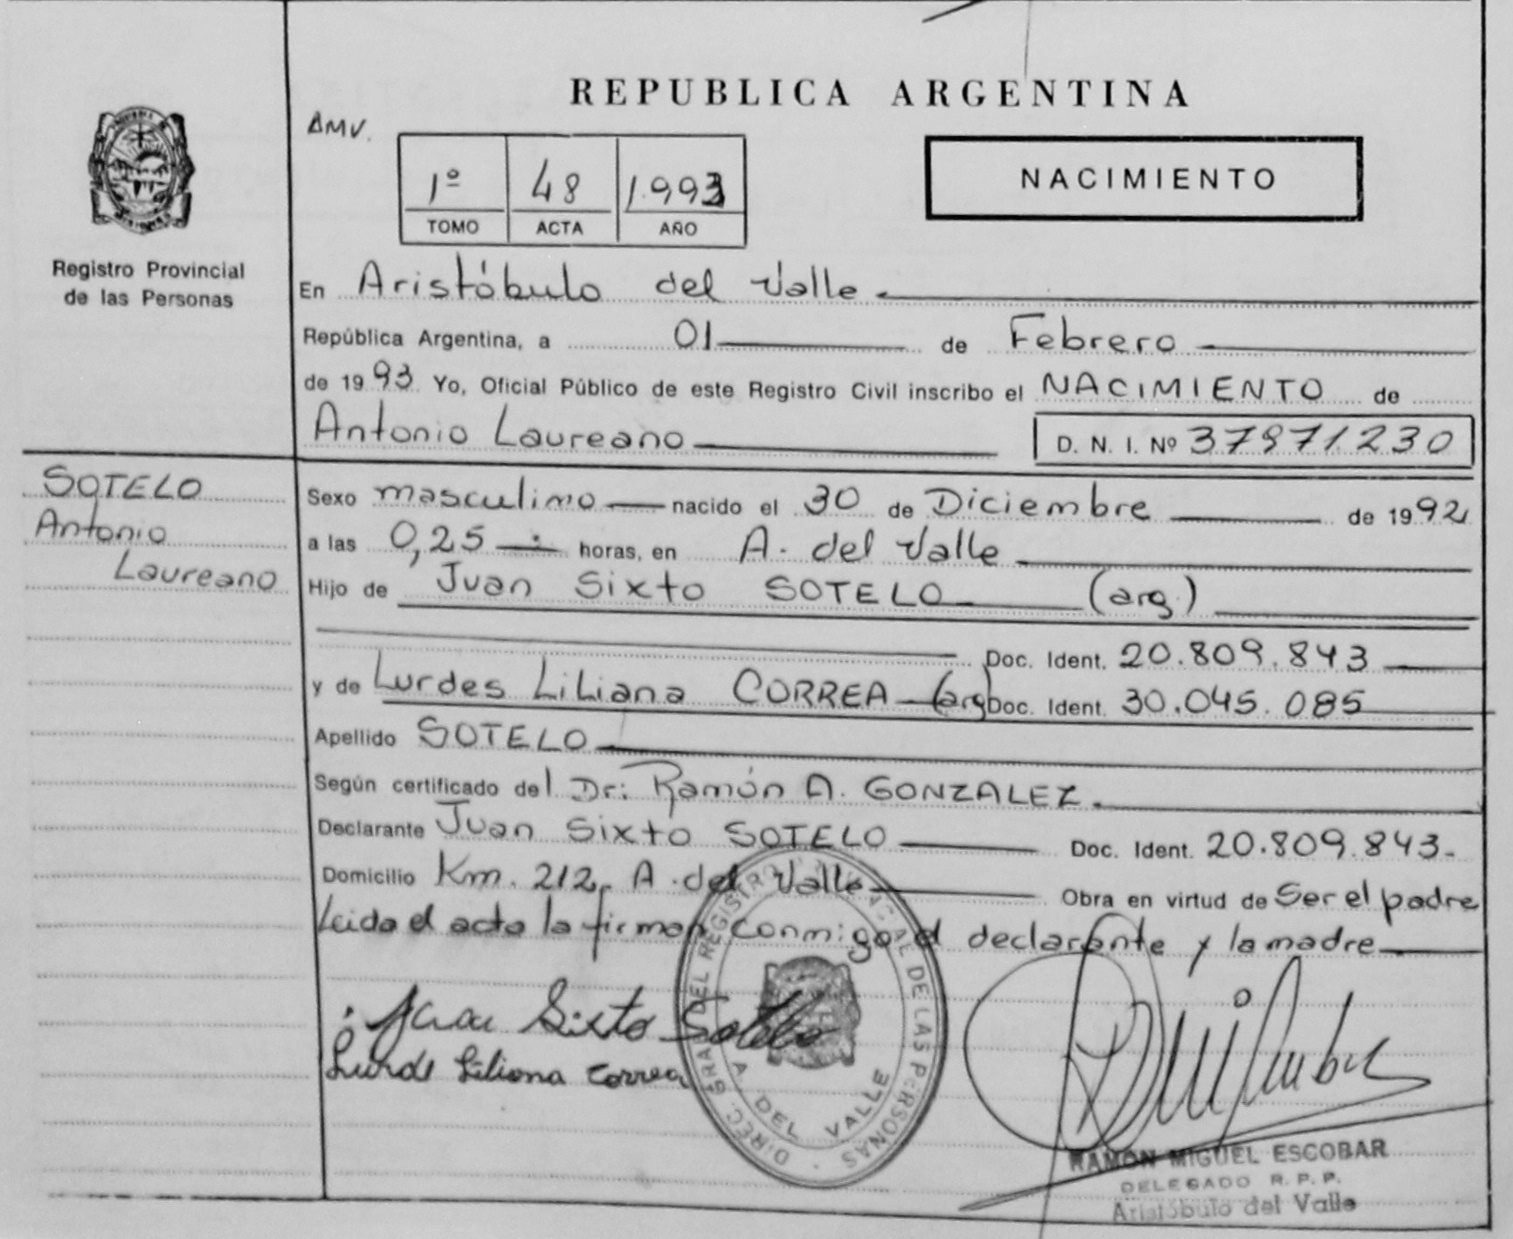 REPUBLICA ARGENTINA
AMV.
1º 48 1.993
TOMO ACTA AÑO
NACIMIENTO
Registro Provincial
de las Personas
En Aristóbulo del Valle
República Argentina, a 01 de Febrero
de 1993 Yo, Oficial Público de este Registro Civil inscribo el NACIMIENTO de
Antonio Laureano D. N. I. Nº 37971230
SOTELO
Antonio
Laureano
Sexo masculino nacido el 30 de Diciembre de 1992
a las 0,25 horas, en A. del Valle
Hijo de Juan Sixto SOTELO (arg.)
Doc. Ident. 20.809.843
y de Lurdes Liliana CORREA (arg) Doc. Ident. 30.045.085
Apellido SOTELO
Según certificado del Dr: Ramón A. GONZALEZ.
Declarante Juan Sixto SOTELO Doc. Ident. 20.809.843.
Domicilio Km. 212, A. del Valle Obra en virtud de Ser el padre
Leida el acta la firman conmigo el declarante y la madre
Juan Sixto Sotelo
Lurde Liliana Correa
DIREC. GRAL DEL REGISTRO DE LAS PERSONAS
A DEL VALLE
RAMON MIGUEL ESCOBAR
DELEGADO R. P. P.
Aristóbulo del Valle